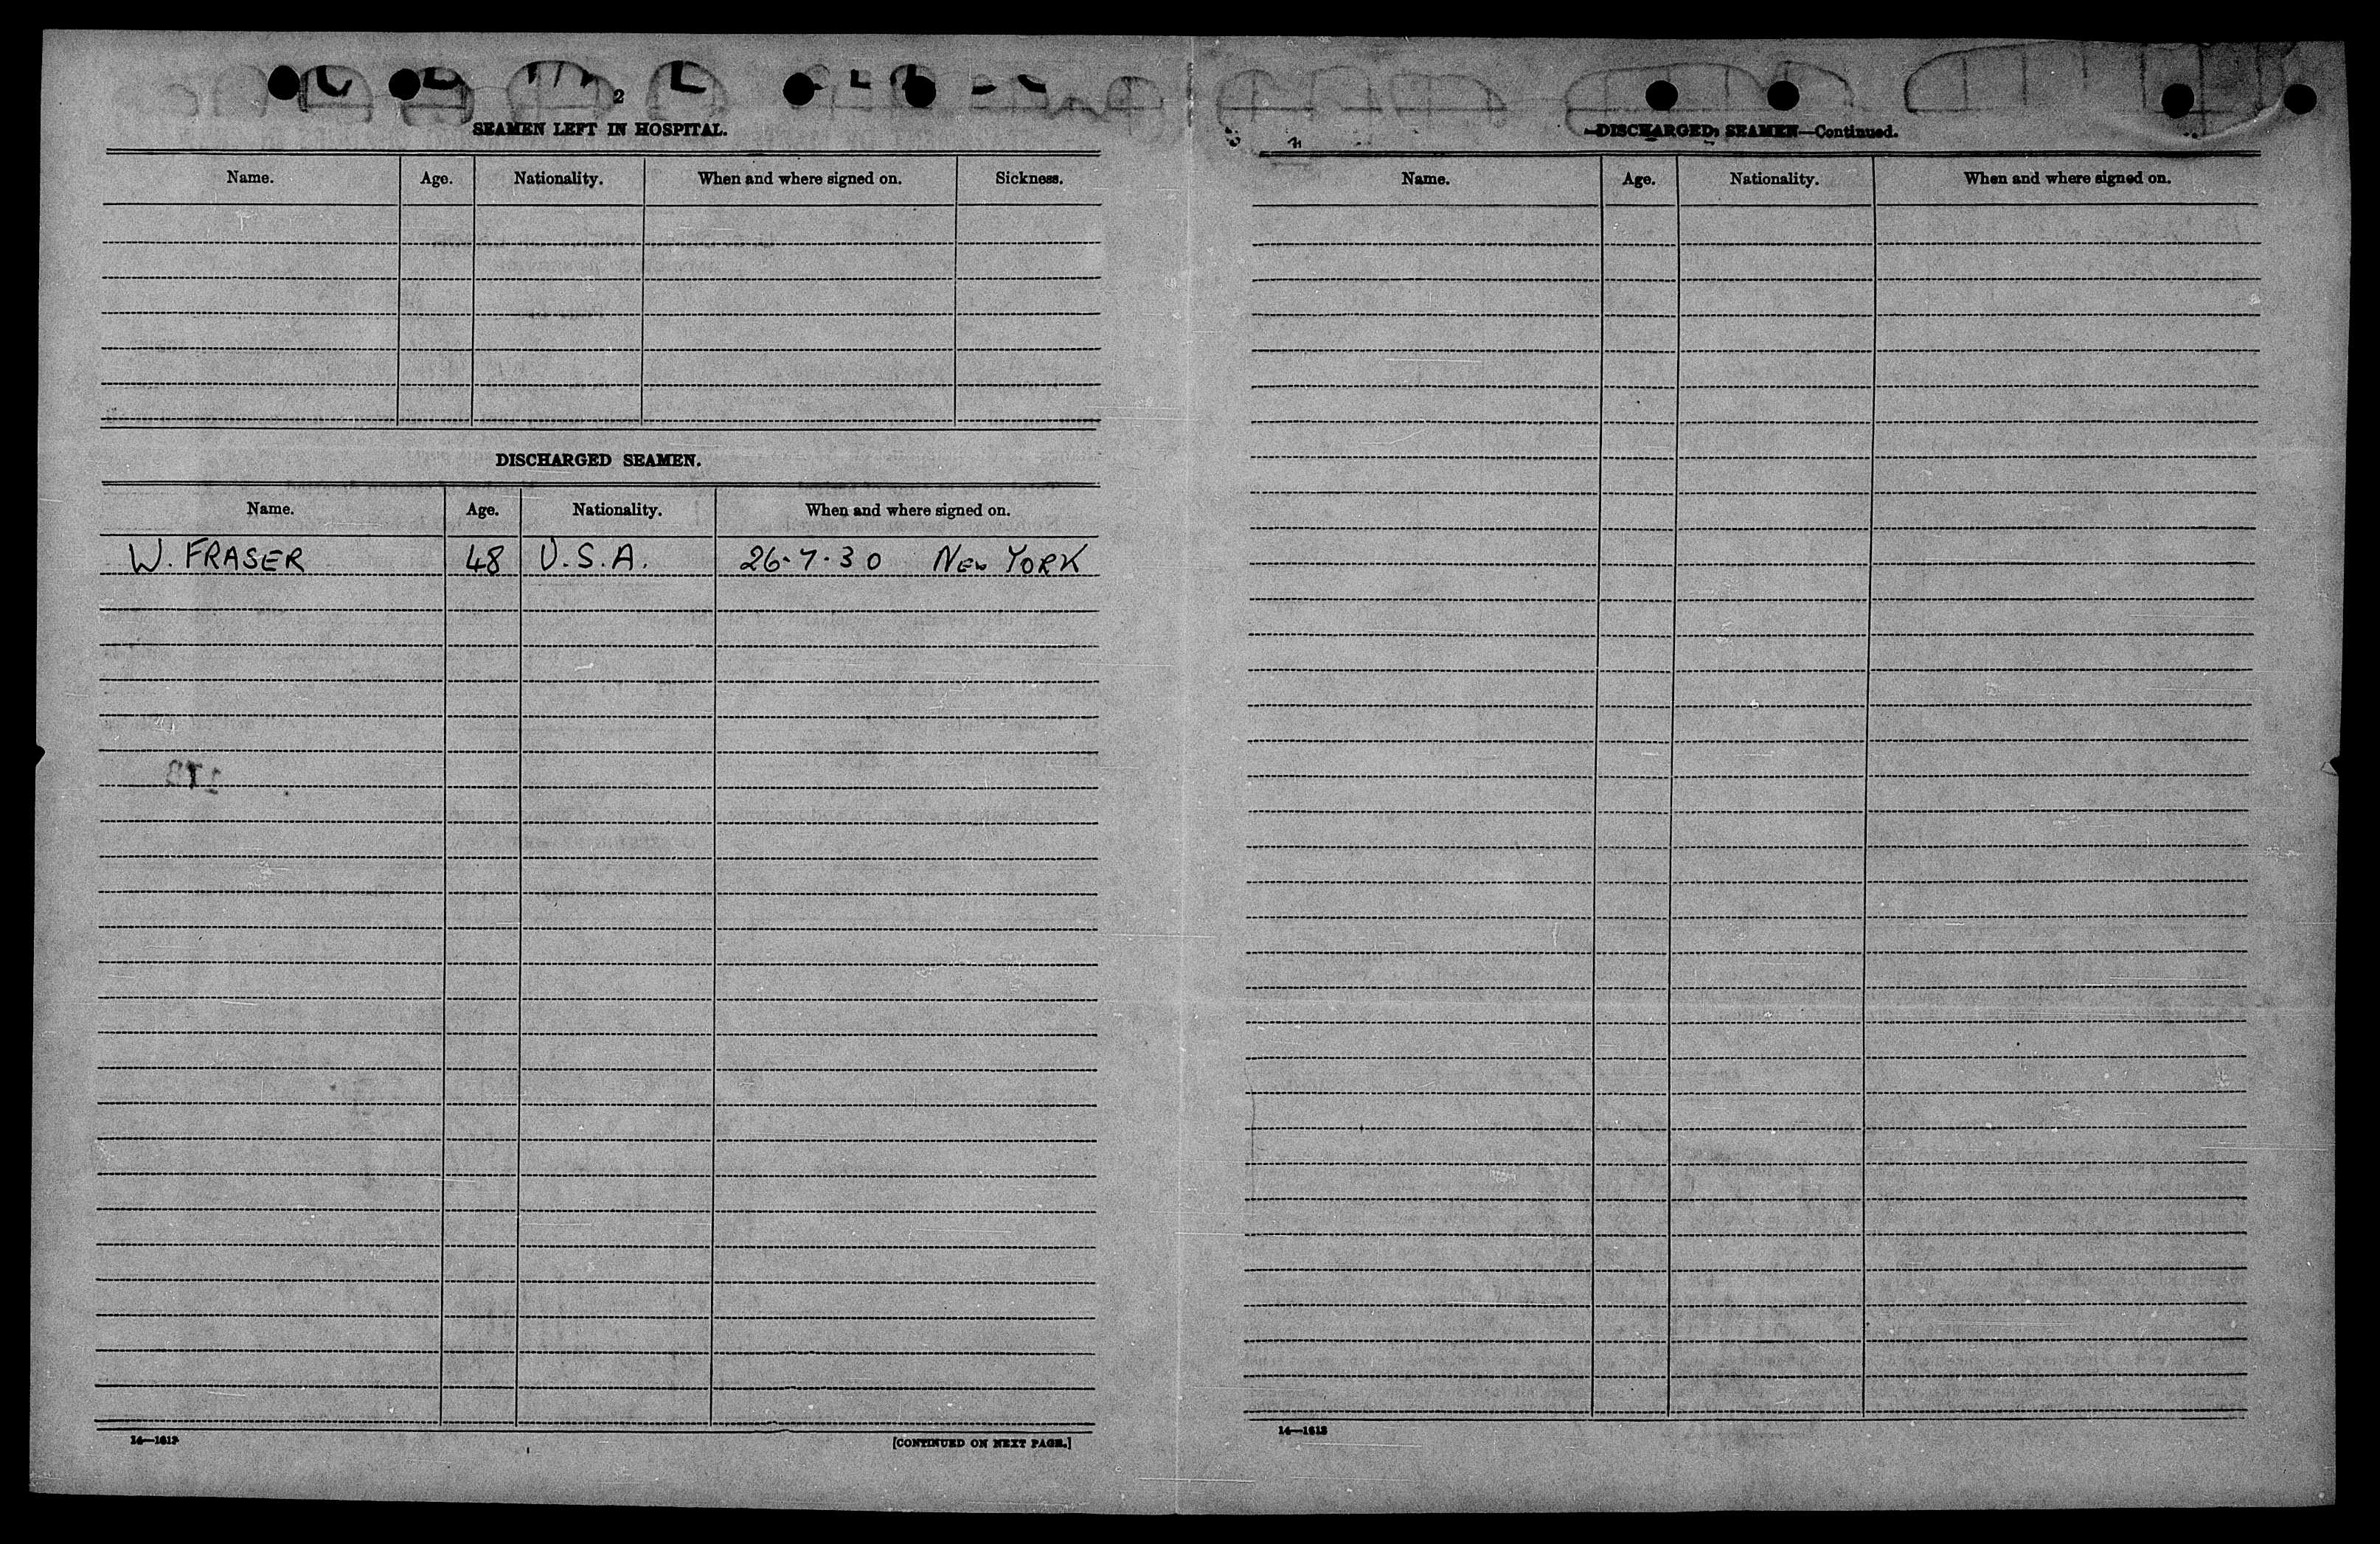 2
SEAMEN LEFT IN HOSPITAL.
Name. Age. Nationality. When and where signed on. Sickness.
DISCHARGED SEAMEN.
Name. Age. Nationality. When and where signed on.
W. FRASER 48 U.S.A. 26.7.30 NEW YORK
14—1613
[CONTINUED ON NEXT PAGE.]
DISCHARGED SEAMEN—Continued.
Name. Age. Nationality. When and where signed on.
14—1613